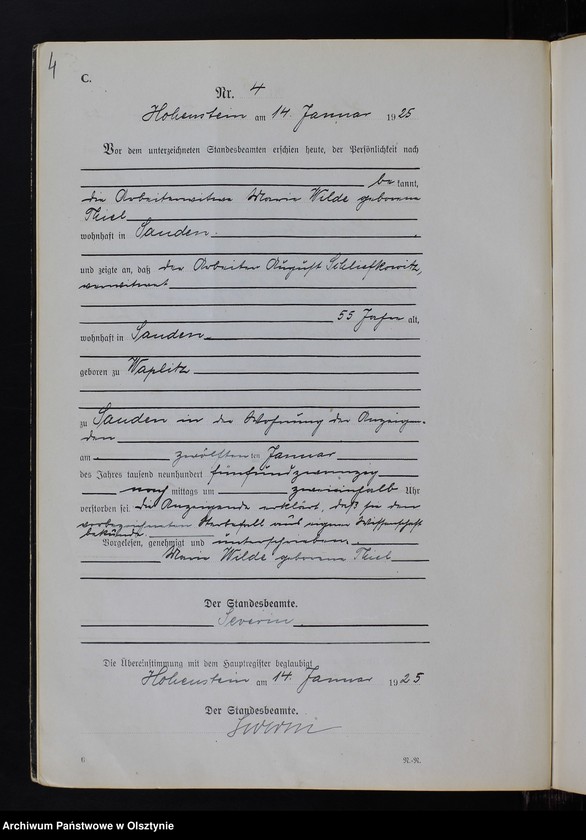 4
C.
Nr. 4
Hohenstein am 14. Januar 1925
Vor dem unterzeichneten Standesbeamten erschien heute, der Persönlichkeit nach
be kannt,
die Arbeiterwitwe Marie Wilde geborene
Thiel
wohnhaft in Sauden
und zeigte an, daß der Arbeiter August Schliefkowitz,
verwitwet
55 Jahre alt,
wohnhaft in Sauden
geboren zu Waplitz
zu Sauden in der Wohnung der Anzeigen-
den
am zwölften ten Januar
des Jahres tausend neunhundert fünfundzwanzig
nach mittags um zweieinhalb Uhr
verstorben sei. Die Anzeigende erklärt, daß sie den
vorbezeichneten Sterbefall aus eigener Wissenschaft
bekunde.
Vorgelesen, genehmigt und unterschrieben.
Marie Wilde geborene Thiel
Der Standesbeamte.
Severin
Die Übereinstimmung mit dem Hauptregister beglaubigt
Hohenstein am 14. Januar 1925
Der Standesbeamte.
Severin
6
R.-R.
Archiwum Państwowe w Olsztynie